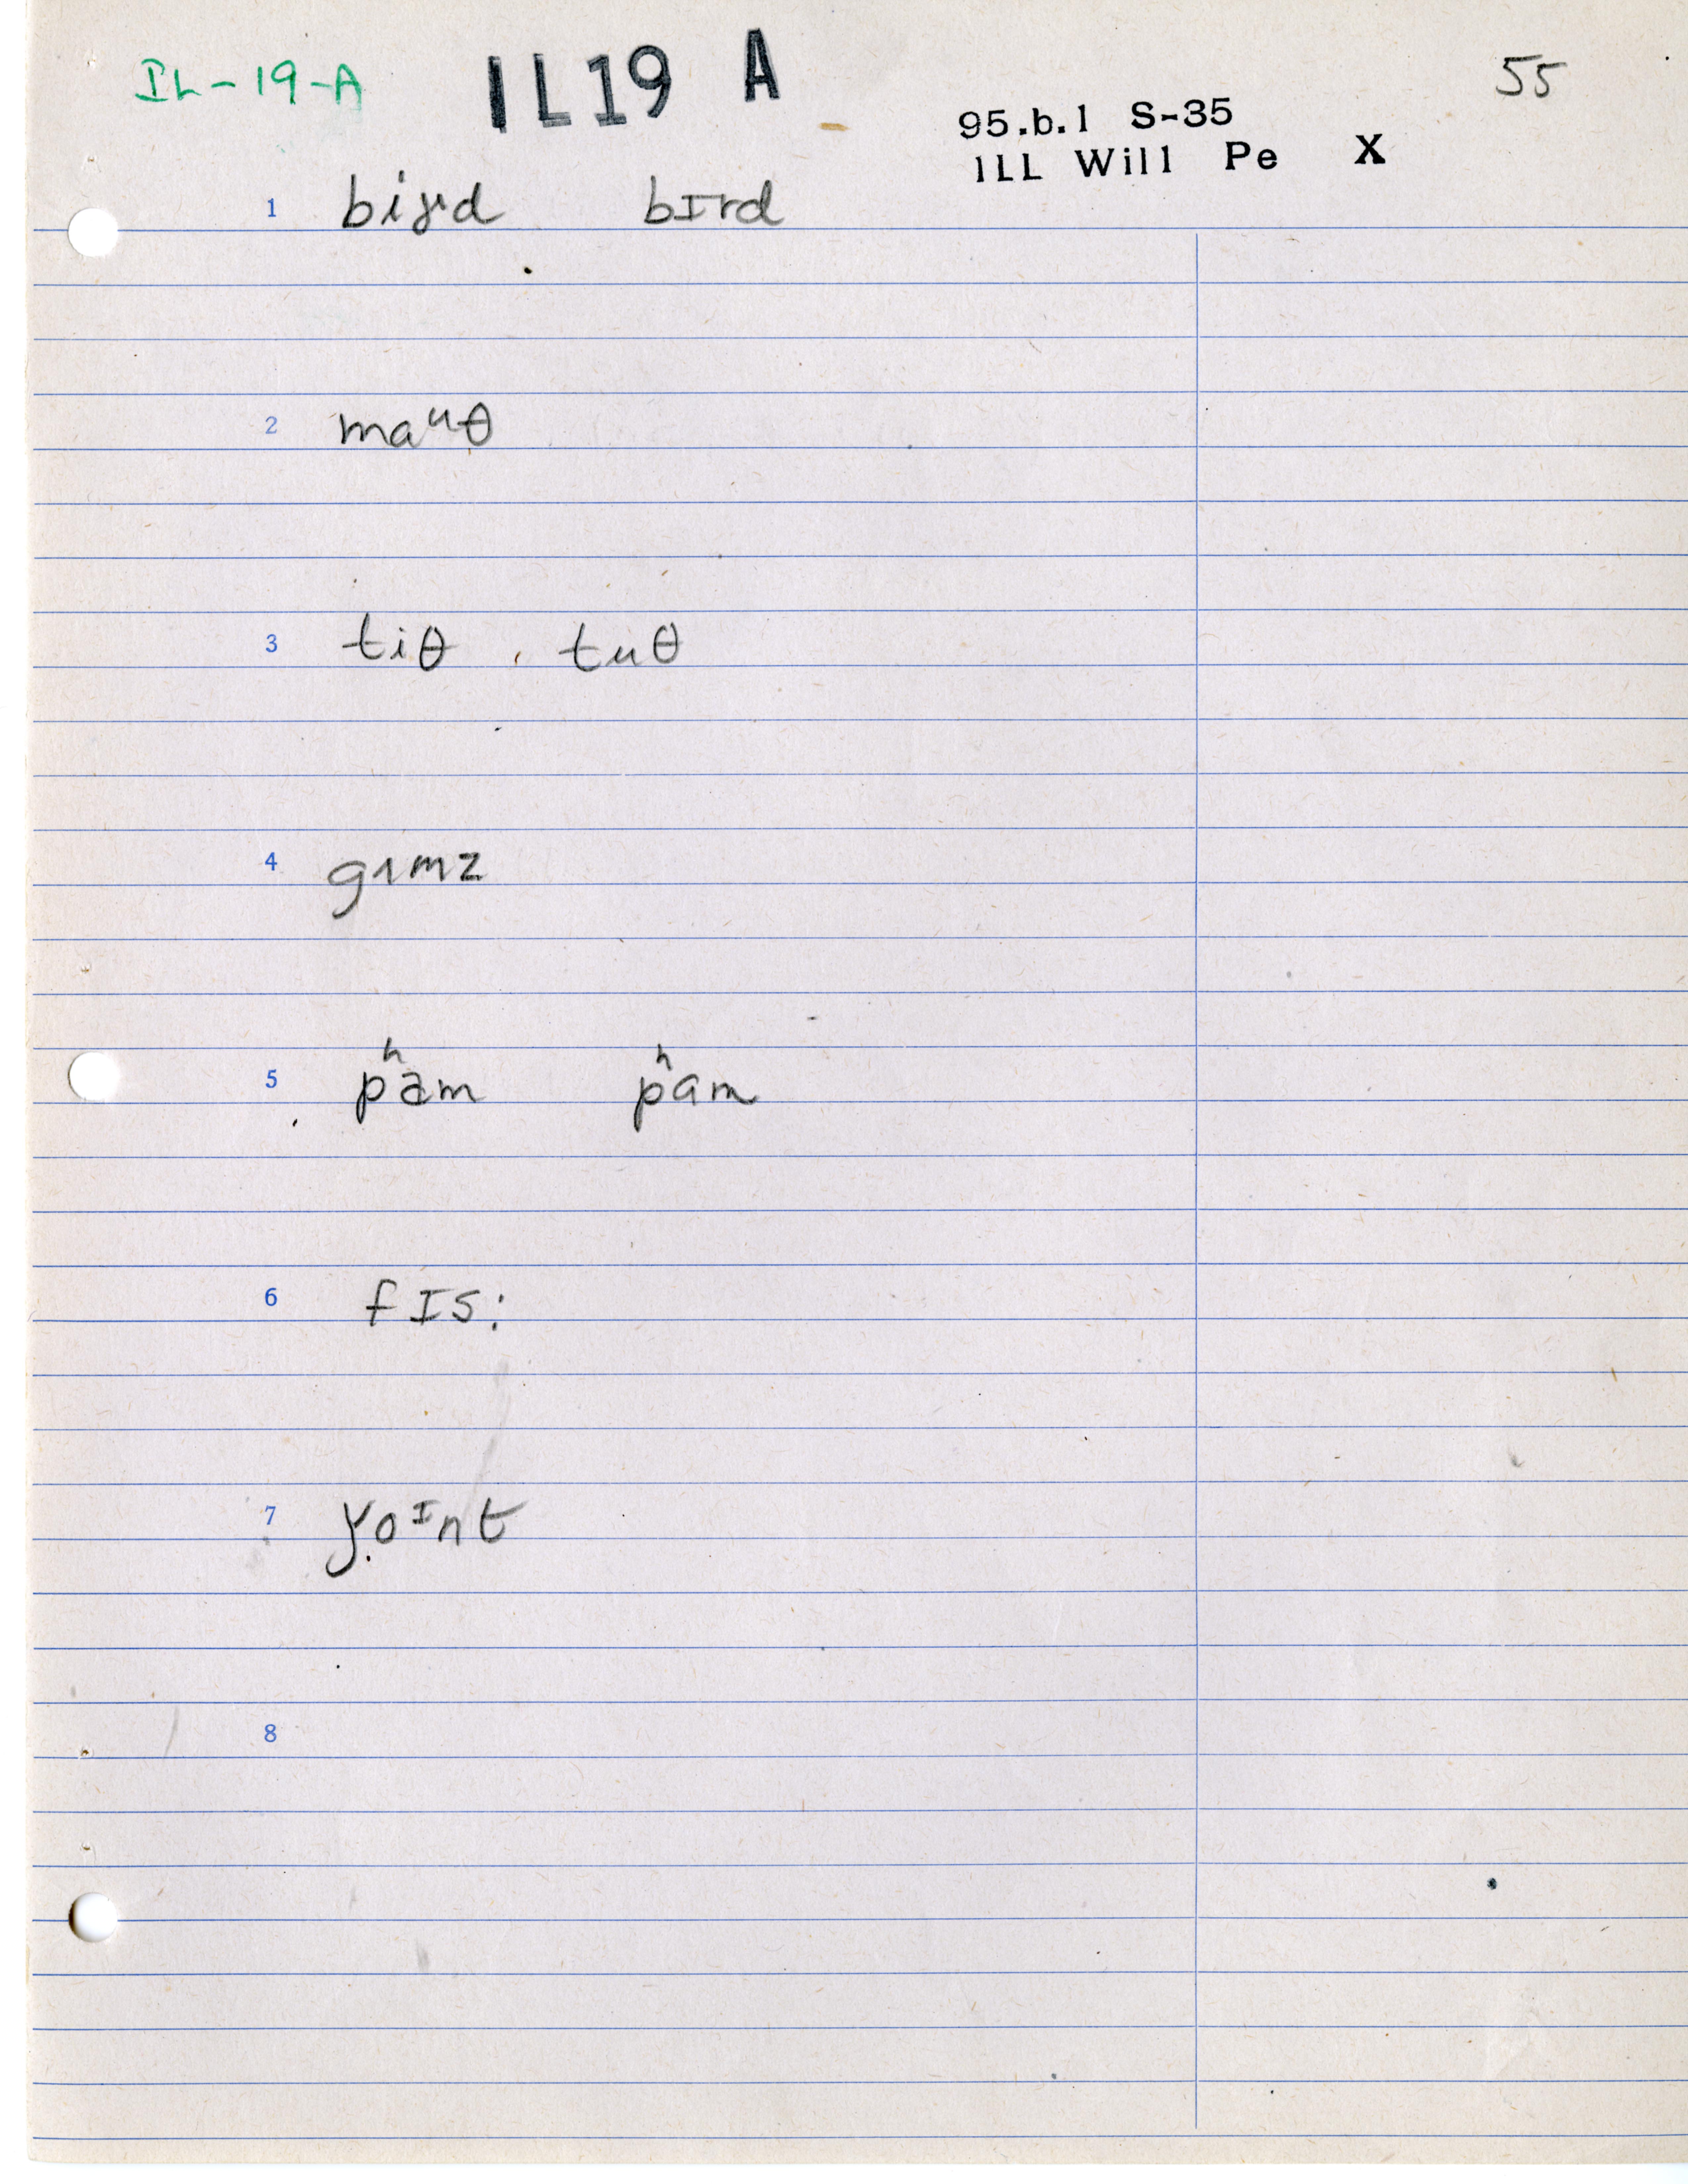 IL-19-A IL19 A 55
95.b.1 S-35
ILL Will Pe X
1 biɣrd bɪrd
2 maᵘθ
3 tiθ tuθ
4 gʌmz
5 pʰam pʰɑm
6 fɪs:
7 ɣ̣oᶦnt
8